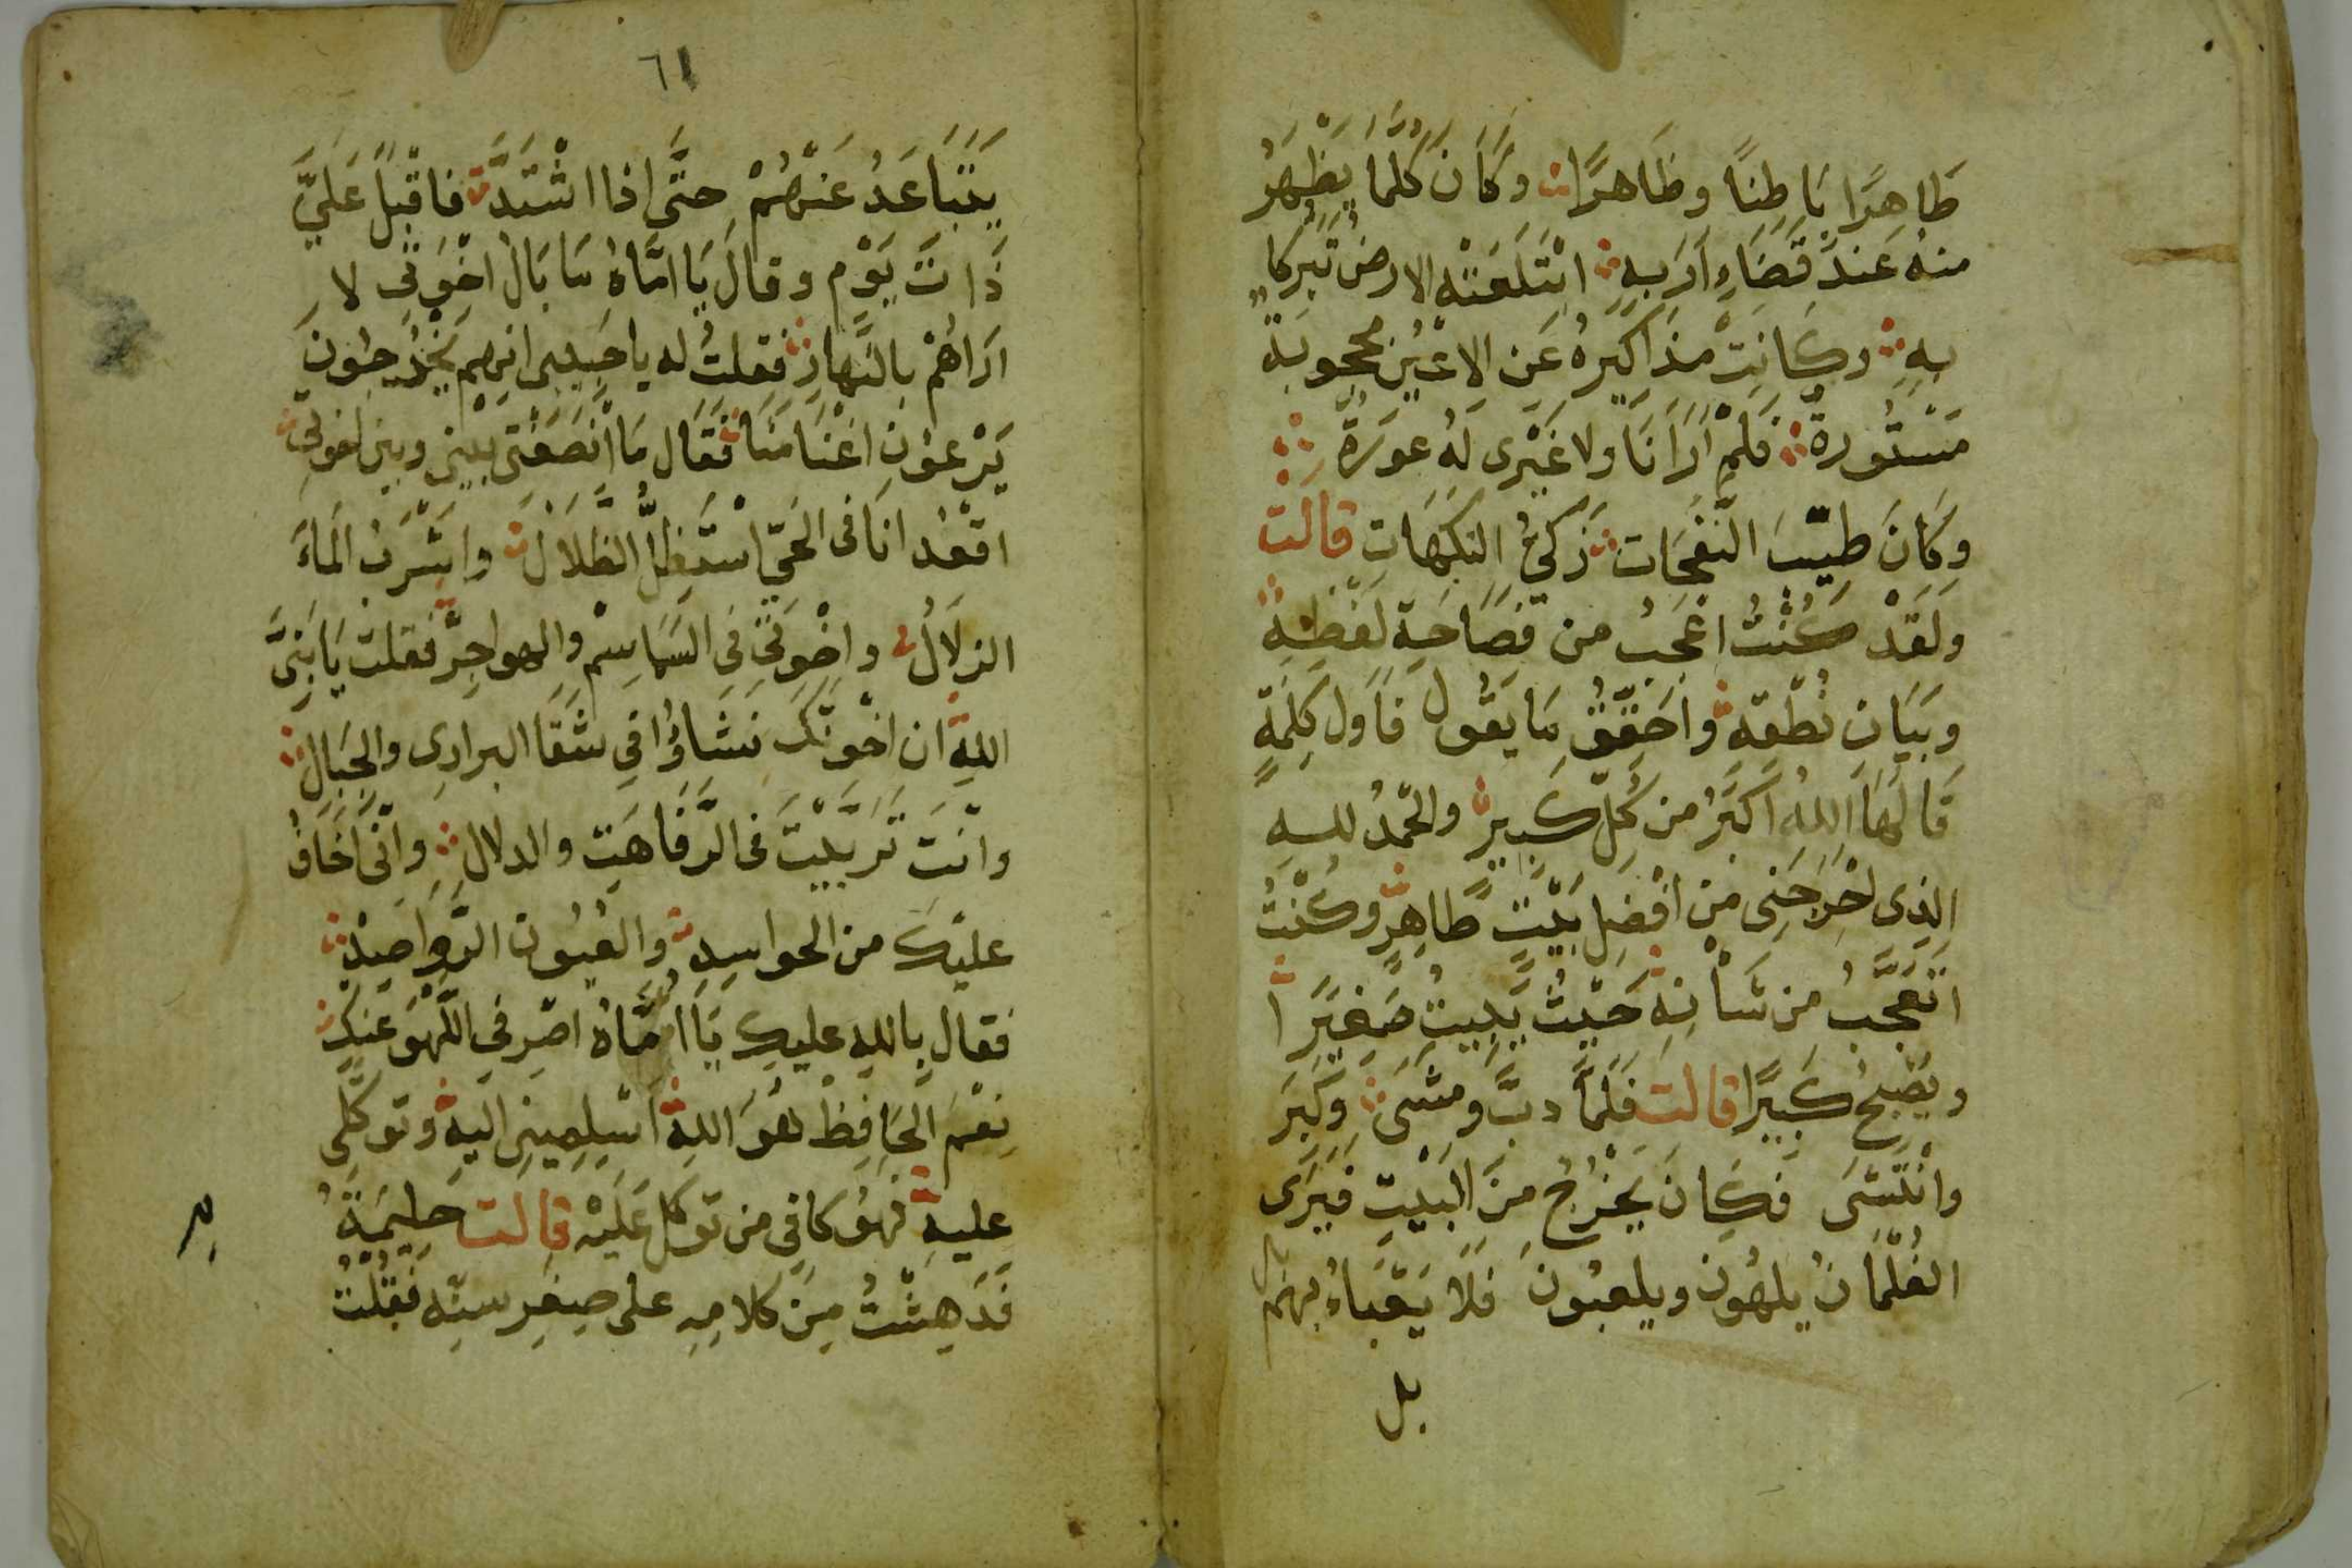 طَاهِرًا بَاطِنًا وظَاهرًا وكَانَ كُلَّمَا يَظْهَرُ
منهُ عَندَ قَضَاءِ اَرَبِهِ ابْتَلَعَتْهِ الارضُ تَبَركا
بِهِ وكَانتْ مذَاكيرهُ عَن الاعْيُن محجوبَة
مَسْتُورة فَلَمْ اَرَ اَنَا ولا غَيْرى لَهُ عورَةً
وَكَانَ طيّبَ النَّفحَات زَكيُّ النكهَاتِ قالت
ولَقَدْ كُنْتُ اعْجَبُ من فصَاحَةِ لَفْظِهِ
وبَيَانِ نُطْقِهِ واحَقّقُ مَا يَقُول فاَول كِلمَةٍ
قَالهَا اللهُ اكبَرُ من كُلّ كَبيرٍ والحَمدُ للهِ
الذِى اخْرَجَنِى مِن افْضلِ بَيْتٍ طَاهِرٍ وكُنْتُ
اتَعَجَّبُ مِن شَاْنِهِ حَيْثُ يَبِيتُ صَغِيَرا
ويُصْبحُ كَبيرًا قالت فَلَمَّا دبَّ ومشَى وكَبَر
وانْتَشَى فَكَانَ يَخْرُجُ مِنَ البَيْتِ فيَرَى
الغُلْمَانَ يلهُونَ ويلعبُونَ فَلَا يَعْبَاءُ بهَم بل
بل
٦١
يَتَبَاعَدُ عَنْهُمْ حتَّى اذا اشْتَدَّ فاقْبَلَ عَليَّ
ذَاتَ يَوْمٍ وقالَ يَا امَّاهُ مَا بَالُ اخْوَتِى لا
ارَاهُمْ بالنَّهارِ فقلتُ له ياحَبِيبى انهم يَخْرُجُونَ
يَرْعَوْنَ اغْنَامنَا فَقَال مَا اَنْصَفْتى بَيْنِى وبين اخوتى
اقْعُد انَا فى الحَيّ اسْتَظِلُّ الظلَالْ واشْرَبُ المَاءَ
الزلَالُ واخْوَتى فى السَّمَاسِمْ والهواجِرّ فقلتْ يَا بُنَىَّ
اللهِ ان اخْوتَكَ نَشَاؤُا فى شَقَا البرارى والجِبَالْ
وانْتَ تَرَبَّيْتَ فى الرَّفَاهَتِ والدلالِ وانّى اَخَافُ
عليْكَ من الحواسِدِ والعُيُونِ الرَّوَاصِدْ
فقال باللهِ عليكِ يَا امَّاهُ اصرفى اللّهوَ عَنكِ
نِعْمَ الحَافِظْ هُوَ اللهِ اَسْلِمينِى اليهِ وتوكَّلى
عليهِ فهُوَ كافى من توكل عَلَيْه قالت حليمَةُ
فَدَهِشْتُ مِنَ كلامِهِ على صِغَرِ سنّه فقُلْتُ